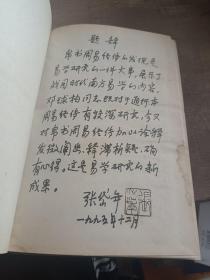 题辞
帛书周易经传的发现是
易学研究的一件大事，展示了
战国时代南方易学的内容。
邓球柏同志既对于通行本
周易经传有较深研究，今又
对帛书周易经传加以诠释
发挥阐幽、释滞析疑，确
有心得。这是易学研究的新
成果。
张岱年
一九九五年十二月